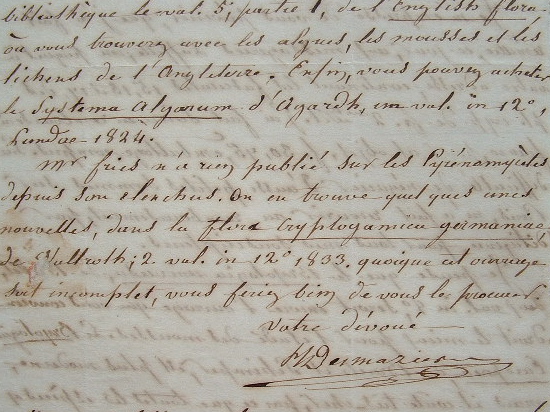 bibliothèque le vol. 5, partie 1, de l'English flora
où vous trouverez avec les algues, les mousses et les
lichens de l'Angleterre. Enfin, vous pouvez acheter
le Systema Algarum d'Agardh, un vol. in 12º,
Lundae 1824.
Mr fries n'a rien publié sur les Pyrénomycètes
depuis son elenchus. On en trouve quelques unes
nouvelles, dans la flora Cryptogamica germaniae
de Wallroth; 2. vol. in 12º 1833. quoique cet ouvrage
soit incomplet, vous feriez bien de vous le procurer.
Votre dévoué
Desmazières